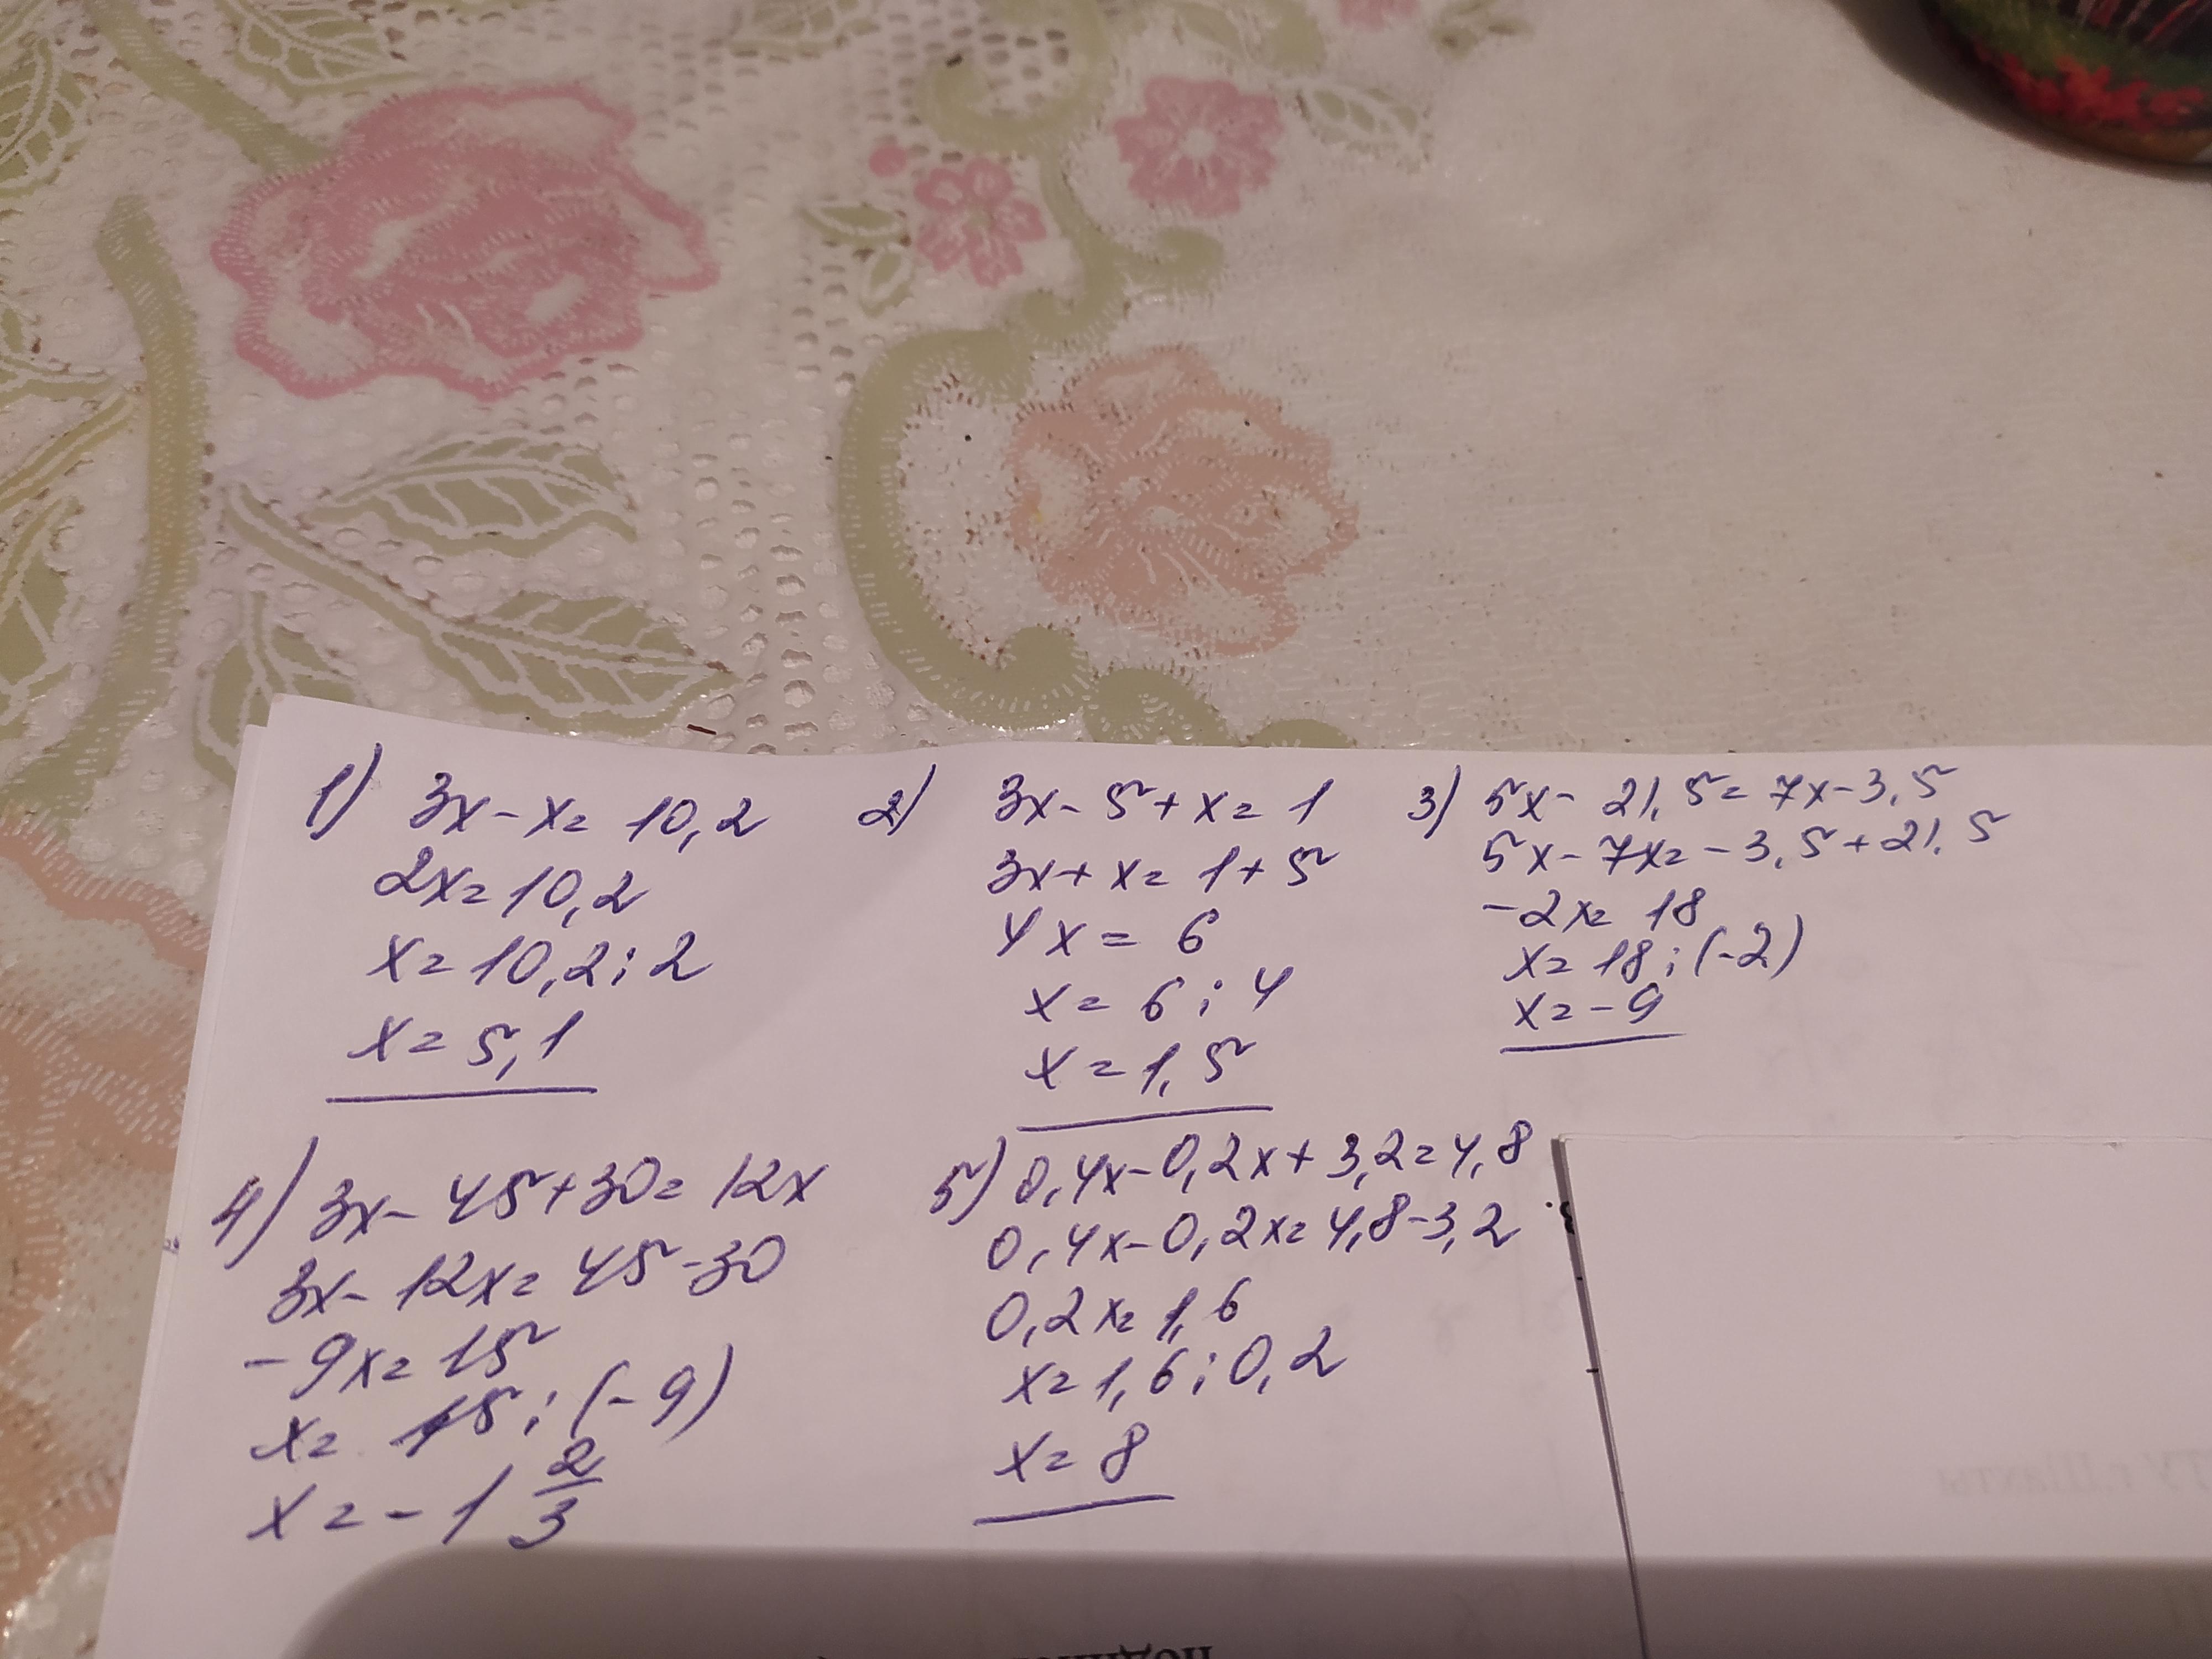 1) 3x - x = 10,2
2x = 10,2
x = 10,2 : 2
x = 5,1
2) 3x - 5 + x = 1
3x + x = 1 + 5
4x = 6
x = 6 : 4
x = 1,5
3) 5x - 21,5 = 7x - 3,5
5x - 7x = -3,5 + 21,5
-2x = 18
x = 18 : (-2)
x = -9
4) 3x - 45 + 30 = 12x
3x - 12x = 45 - 30
-9x = 15
x = 15 : (-9)
x = -1 2/3
5) 0,4x - 0,2x + 3,2 = 4,8
0,4x - 0,2x = 4,8 - 3,2
0,2x = 1,6
x = 1,6 : 0,2
x = 8